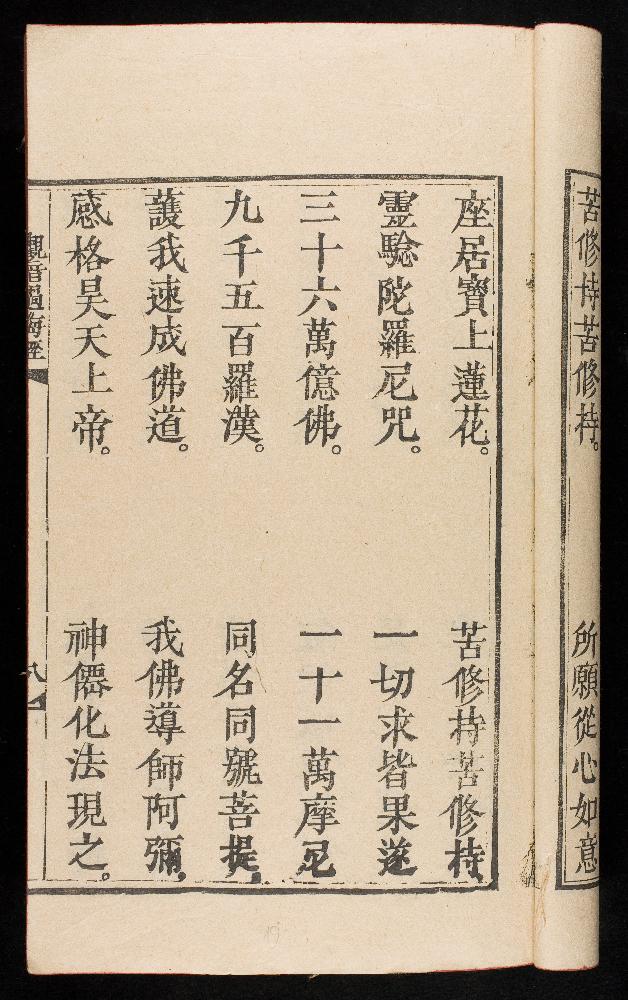 苦修持苦修持。 所願從心如意
座居寶上蓮花。 苦修持苦修持
靈騐陀羅尼咒。 一切求皆果遂
三十六萬億佛。 一十一萬摩尼
九千五百羅漢。 同名同號菩提
護我速成佛道。 我佛導師阿彌
感格昊天上帝。 神僊化法現之。
觀音過海經 八